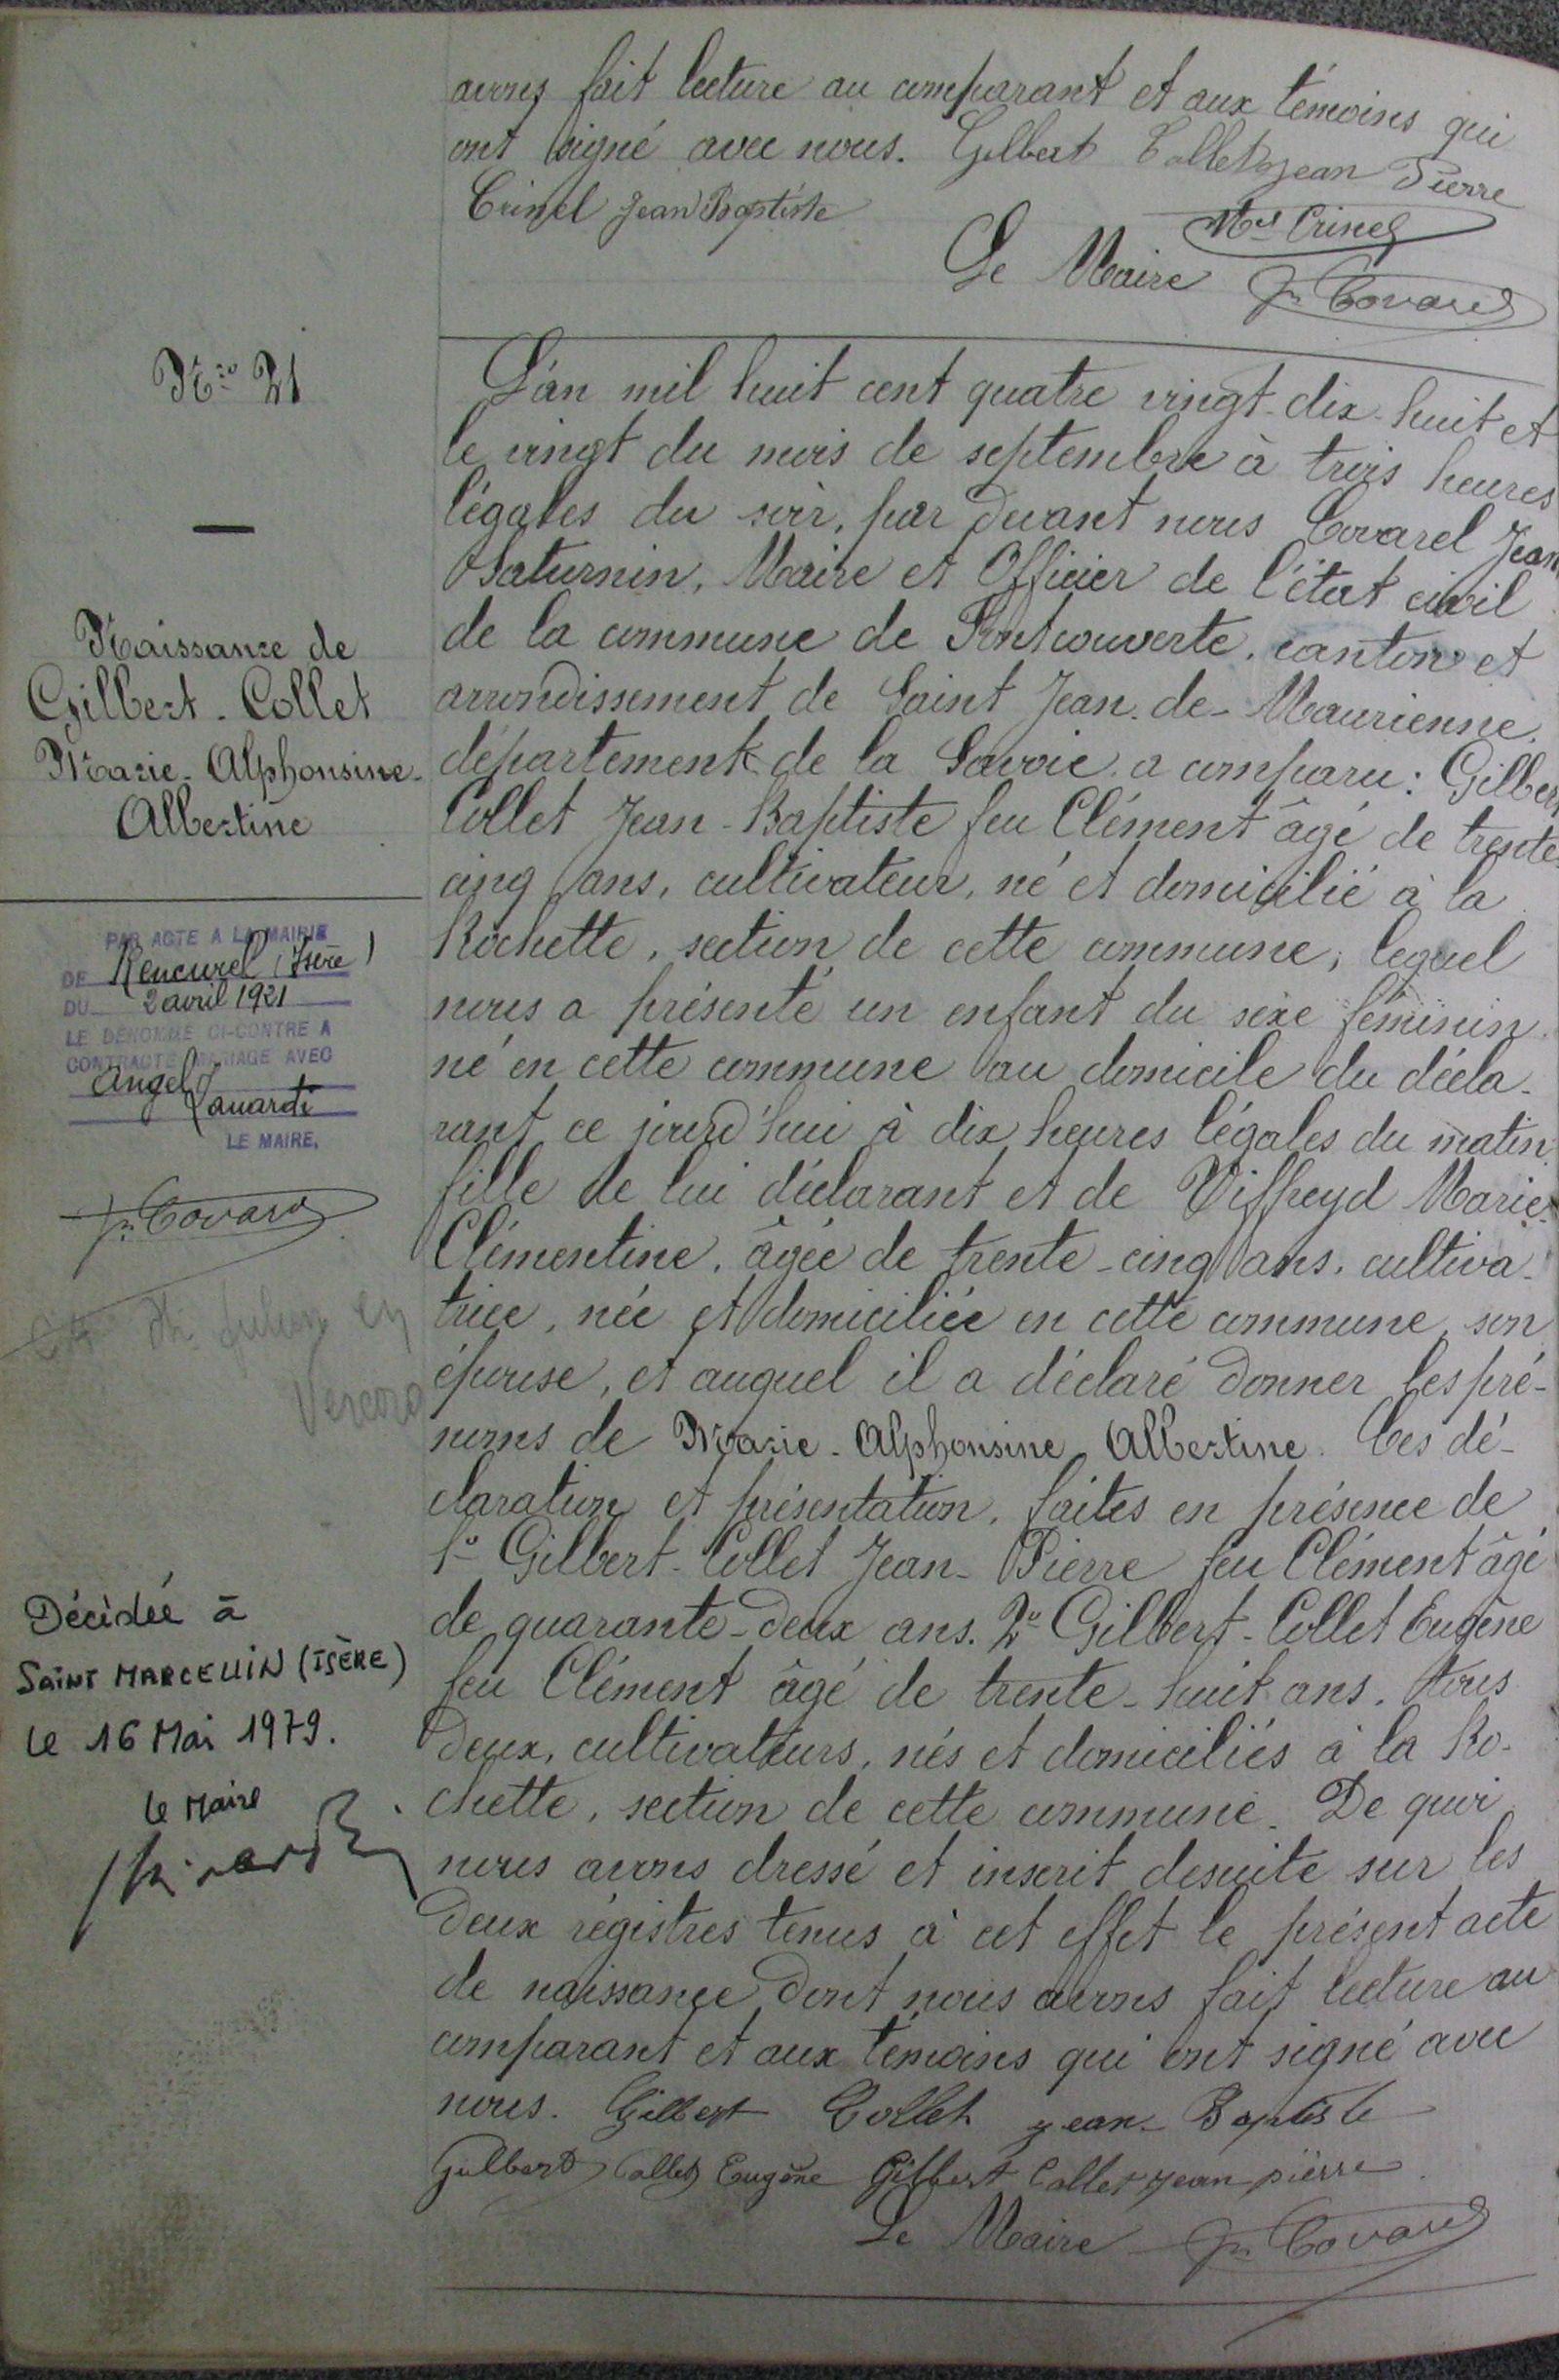 avons fait lecture au comparant et aux témoins qui
ont signé avec nous. Gilbert Collet Jean Pierre
Crinel Jean Baptiste
Crinel
Le Maire Jn Covarel
Nro 21
Naissance de
Gilbert-Collet
Marie-Alphonsine-
Albertine
PAR ACTE A LA MAIRIE
DE Rencurel (Isère)
DU 2 avril 1921
LE DÉNOMMÉ CI-CONTRE A
CONTRACTÉ MARIAGE AVEC
Angel
LE MAIRE,
Jn Covarel
St Julien en
Vercors
Décédée à
SAINT MARCELLIN (ISÈRE)
le 16 Mai 1979.
le Maire
L'an mil huit cent quatre vingt-dix-huit et
le vingt du mois de septembre à trois heures
légales du soir, par devant nous Covarel Jean
Saturnin, Maire et Officier de l'état civil
de la commune de Fontcouverte, canton et
arrondissement de Saint Jean-de-Maurienne,
département de la Savoie a comparu: Gilbert
Collet Jean-Baptiste feu Clément âgé de trente
cinq ans, cultivateur, né et domicilié à la
Rochette, section de cette commune, lequel
nous a présenté un enfant du sexe féminin
né en cette commune au domicile du décla-
rant ce jourd'hui à dix heures légales du matin
fille de lui déclarant et de Viffreyd Marie-
Clémentine, âgée de trente-cinq ans, cultiva-
trice, née et domiciliée en cette commune, son
épouse, et auquel il a déclaré donner les pré-
noms de Marie-Alphonsine Albertine. Ces dé-
claration et présentation, faites en présence de
1º Gilbert-Collet Jean-Pierre feu Clément âgé
de quarante-deux ans. 2º Gilbert-Collet Eugène
feu Clément âgé de trente-huit ans. tous
deux, cultivateurs, nés et domiciliés à la Ro-
chette, section de cette commune. De quoi
nous avons dressé et inscrit desuite sur les
deux régistres tenus à cet effet le présent acte
de naissance dont nous avons fait lecture au
comparant et aux témoins qui ont signé avec
nous. Gilbert Collet jean-Baptiste
Gilbert Collet Eugène Gilbert Collet Jean pierre
Le Maire Jn Covarel